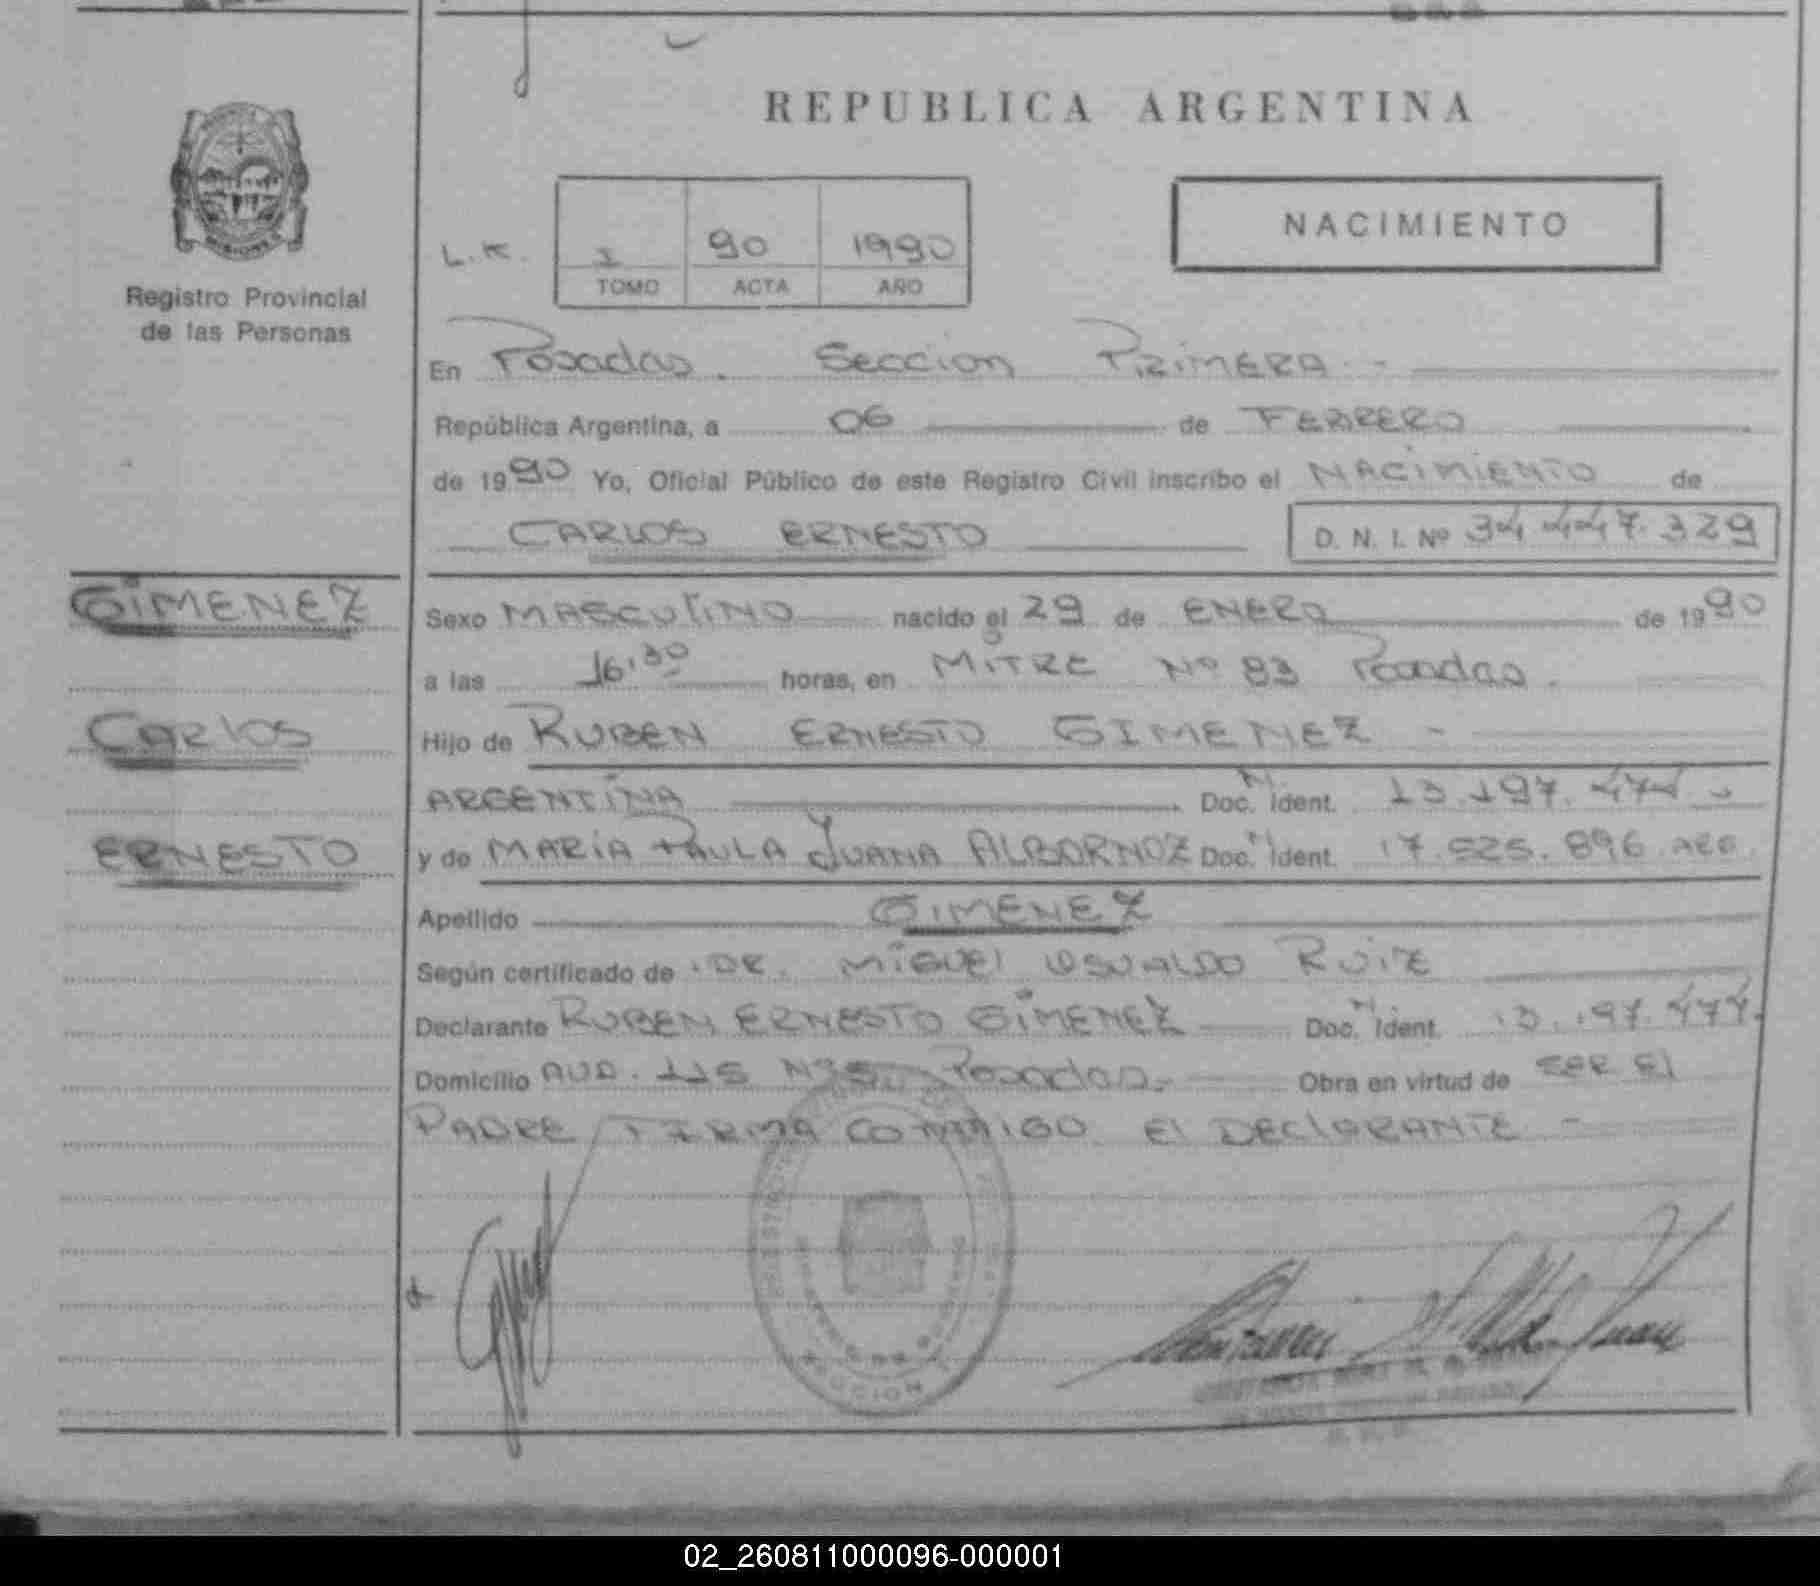 REPUBLICA ARGENTINA
NACIMIENTO
L.K. I 90 1990
TOMO ACTA AÑO
Registro Provincial
de las Personas
En Posadas. Seccion PRIMERA -
República Argentina, a 06 de FEBRERO
de 1990 Yo, Oficial Público de este Registro Civil inscribo el NACIMIENTO de
CARLOS ERNESTO D. N. I. Nº 34.447.329
GIMENEZ
Carlos
ERNESTO
Sexo MASCULINO nacido el 29 de ENERO de 1990
a las 16,30 horas, en MITRE Nº 83 Posadas.
Hijo de RUBEN ERNESTO GIMENEZ -
ARGENTINA Doc. N Ident. 13.197.474
y de MARIA PAULA JUANA ALBORNOZ Doc. N Ident. 17.525.896 ARG.
Apellido GIMENEZ
Según certificado de DR. MIGUEL OSVALDO RUIZ
Declarante RUBEN ERNESTO GIMENEZ Doc. N Ident. 13.197.474.
Domicilio AVD. 115 Nº 5 Posadas. Obra en virtud de SER El
PADRE FIRMA CONMIGO El DEClARANTE -
SECCION
02_260811000096-000001